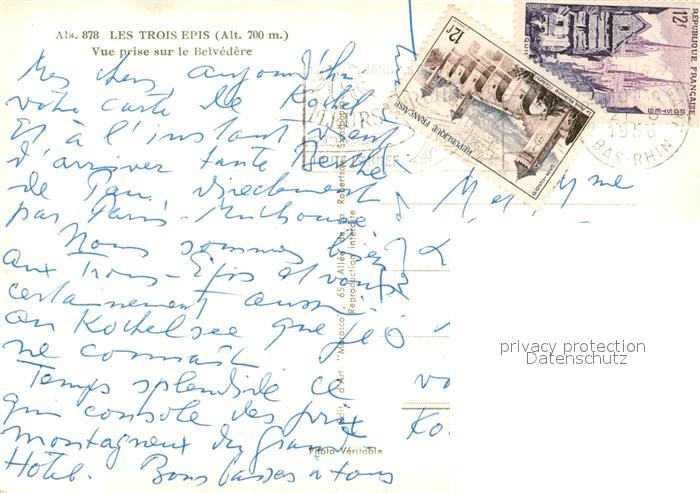 Als. 878 LES TROIS EPIS (Alt. 700 m.)
Vue prise sur le Belvédère
Mes chers aujourd'hui
votre carte de Kochel
Et à l'instant vient
d'arriver tante Berthe
de Pau. Directement
par Paris-Mulhouse
Nous sommes bien
aux Trois-Epis et vous
certainement aussi
au Kochelsee que je
ne connais
Temps splendide ce
qui console des prix
montagneux du grand
Hotel. Bons baisers à tous
Édit. d'Art "Marasco", 65, Allée de la Robertsau, Strasbourg
Reproduction interdite
Photo Véritable
12f
REPUBLIQUE FRANÇAISE
POSTES
12f
REPUBLIQUE FRANÇAISE
FLEURS
1956
BAS-RHIN
M et Mme
vo
Ko
privacy protection
Datenschutz